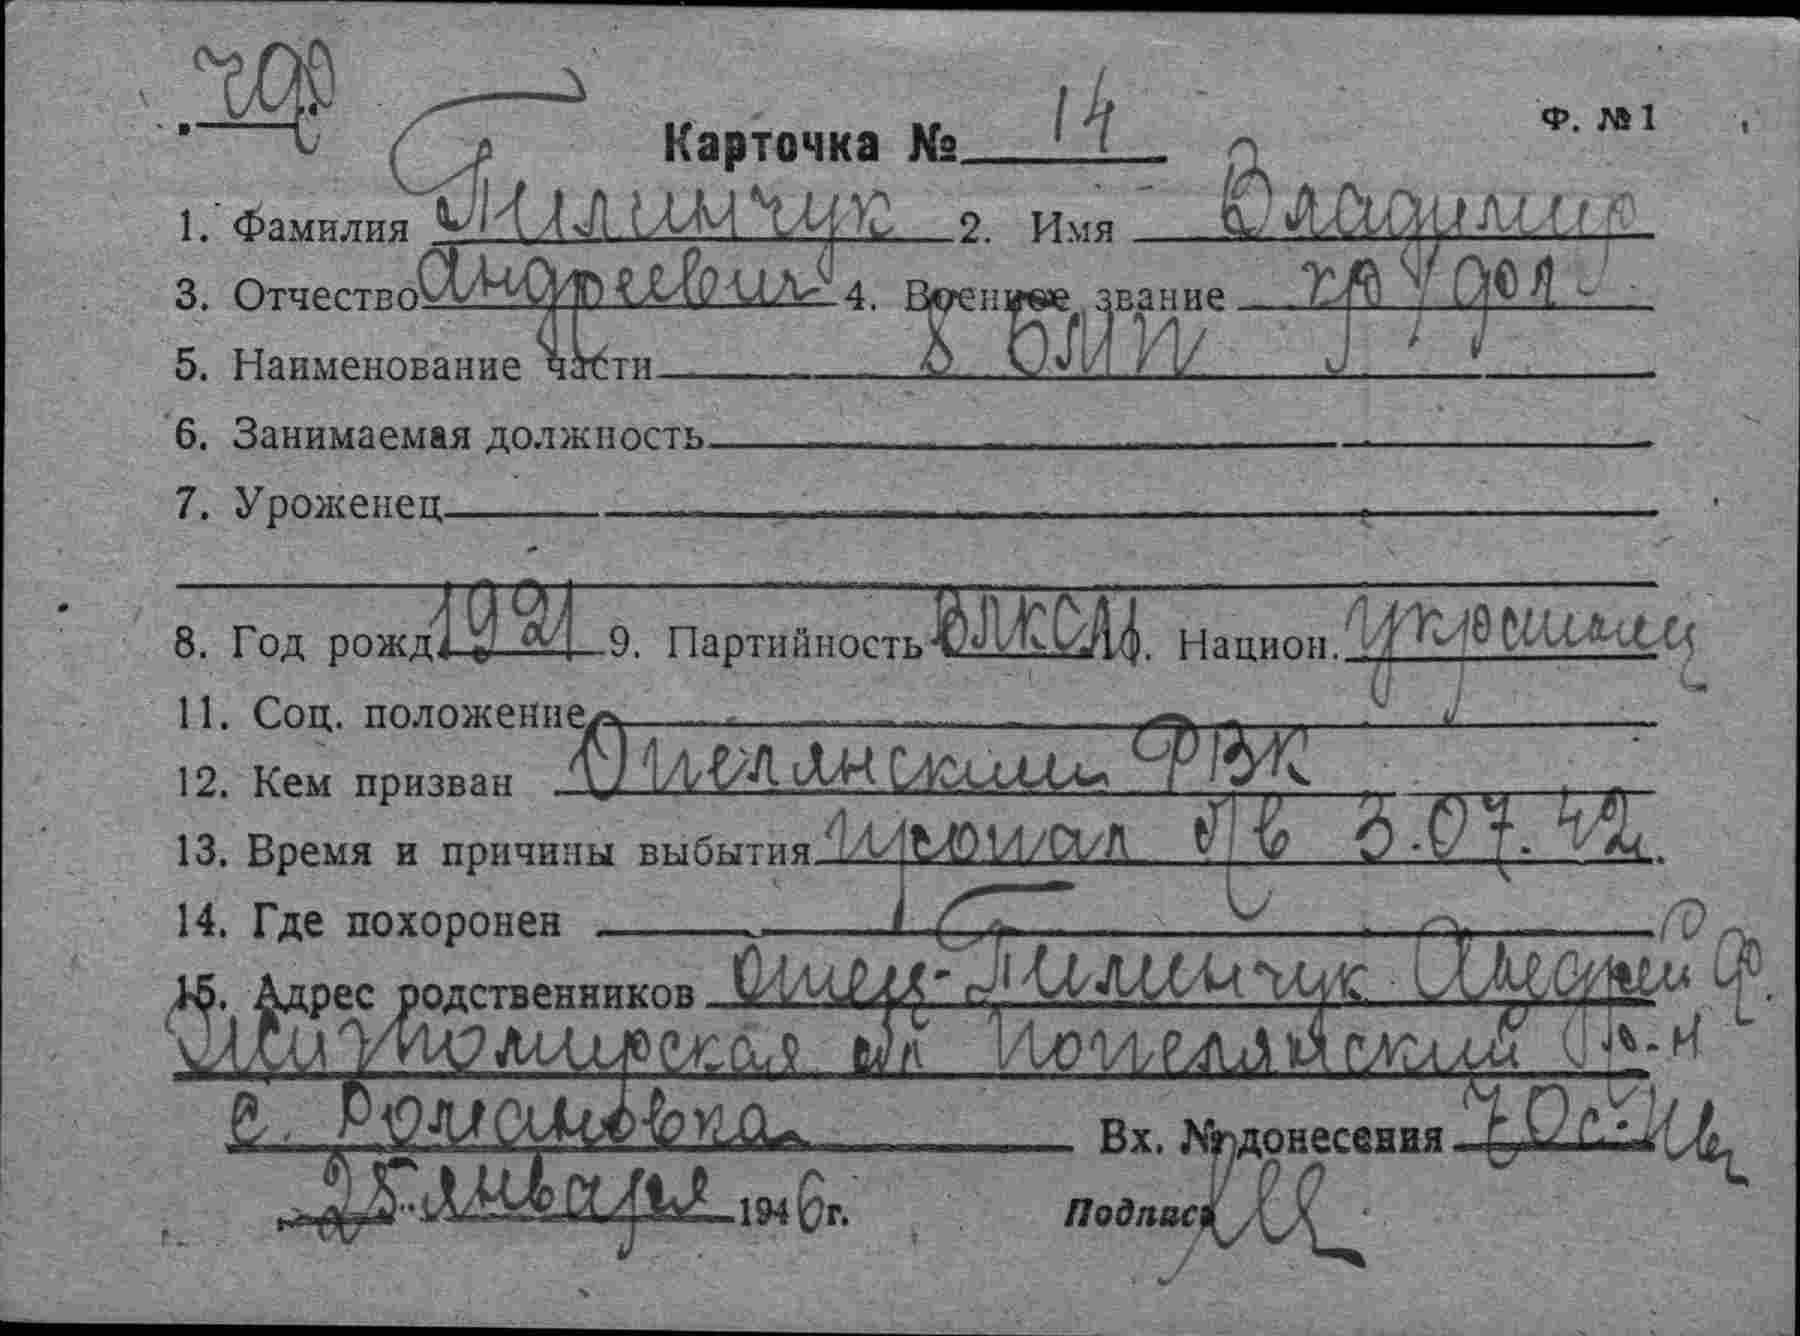 Ф. №1
Карточка № 14
1. Фамилия Пилинчук 2. Имя Владимир
3. Отчество Андреевич 4. Военное звание
5. Наименование части 8 БМП
6. Занимаемая должность
7. Уроженец
8. Год рожд. 1921 9. Партийность ВЛКСМ 10. Национ. украинец
11. Соц. положение
12. Кем призван РВК
13. Время и причины выбытия пропал б/в 3.07.42.
14. Где похоронен
15. Адрес родственников Отец-Пилинчук Андрей Ф.
Житомирская обл Попелянский р-н
с. Романовка Вх. № донесения
25 января 1946 г. Подпись